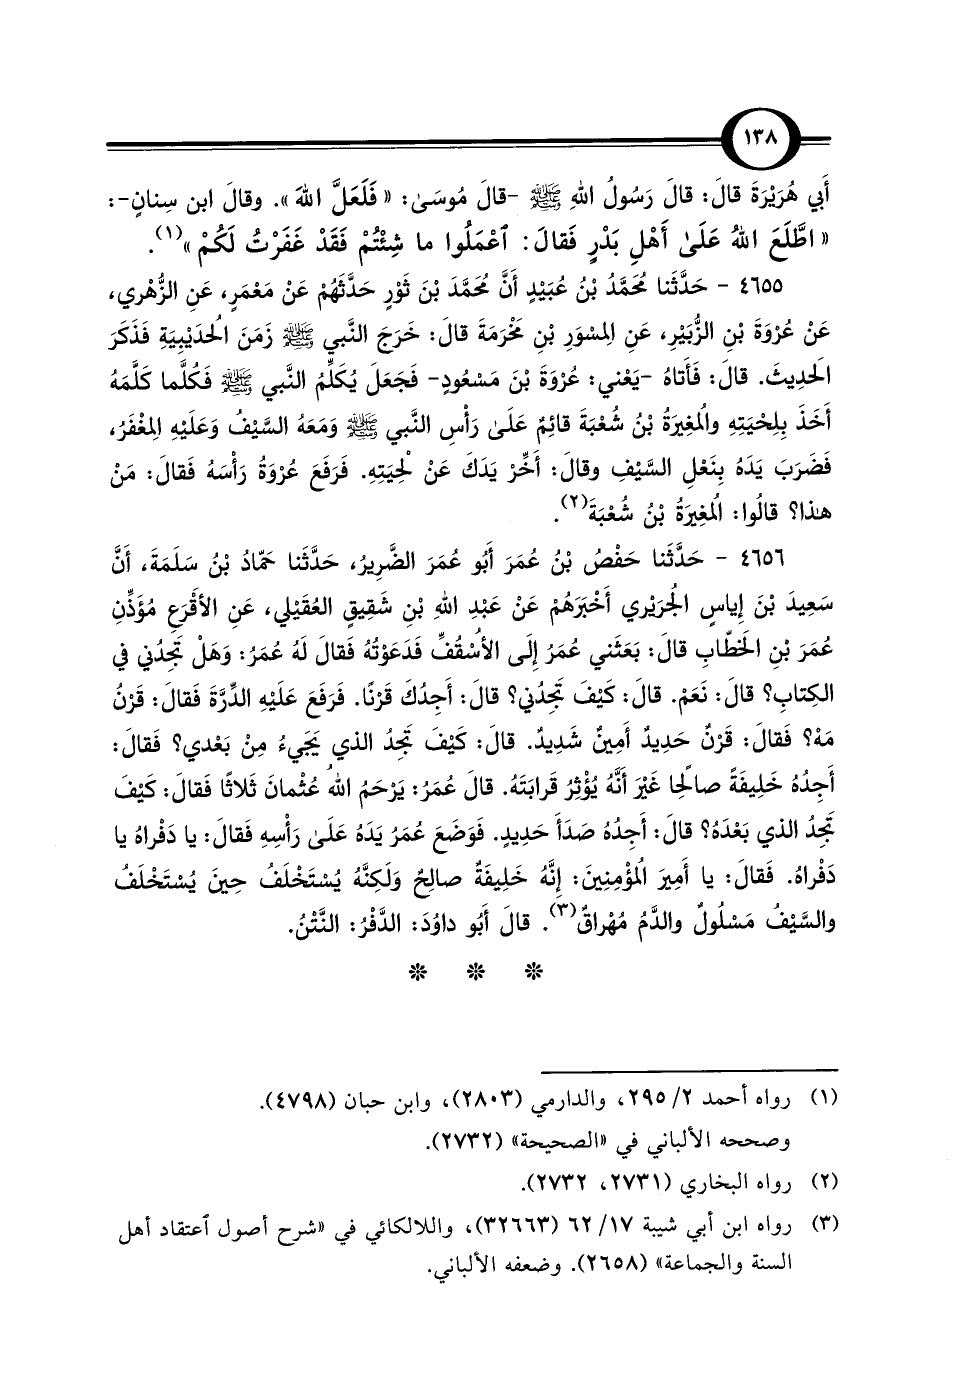 ١٣٨
أَبي هُرَيْرَةَ قالَ: قالَ رَسُولُ اللهِ ﷺ -قالَ مُوسَىٰ: « فَلَعَلَّ اللهَ ». وقالَ ابن سِنانٍ-:
« اطَّلَعَ اللهُ عَلَىٰ أَهْلِ بَدْرٍ فَقالَ: ٱعْمَلُوا ما شِئْتُمْ فَقَدْ غَفَرْتُ لَكُمْ »(١).
٤٦٥٥ - حَدَّثَنا مُحَمَّدُ بْنُ عُبَيْدٍ أَنَّ مُحَمَّدَ بْنَ ثَوْرٍ حَدَّثَهُمْ عَنْ مَعْمَرٍ، عَنِ الزُّهْري،
عَنْ عُرْوَةَ بْنِ الزُّبَيْرِ، عَنِ المِسْوَرِ بْنِ مَخْرَمَةَ قالَ: خَرَجَ النَّبي ﷺ زَمَنَ الحُدَيْبِيَةِ فَذَكَرَ
الحَدِيثَ. قالَ: فَأَتاهُ -يَعْني: عُرْوَةَ بْنَ مَسْعُودٍ- فَجَعَلَ يُكَلِّمُ النَّبي ﷺ فَكُلَّما كَلَّمَهُ
أَخَذَ بِلِحْيَتِهِ والمُغِيرَةُ بْنُ شُعْبَةَ قائِمٌ عَلَىٰ رَأْسِ النَّبي ﷺ وَمَعَهُ السَّيْفُ وَعَلَيْهِ المِغْفَرُ،
فَضَرَبَ يَدَهُ بِنَعْلِ السَّيْفِ وقالَ: أَخِّرْ يَدَكَ عَنْ لِحْيَتِهِ. فَرَفَعَ عُرْوَةُ رَأْسَهُ فَقالَ: مَنْ
هذا؟ قالُوا: المُغِيرَةُ بْنُ شُعْبَةَ(٢).
٤٦٥٦ - حَدَّثَنا حَفْصُ بْنُ عُمَرَ أَبُو عُمَرَ الضَّرِيرُ، حَدَّثَنا حَمّادُ بْنُ سَلَمَةَ، أَنَّ
سَعِيدَ بْنَ إِياسٍ الجُرَيْري أَخْبَرَهُمْ عَنْ عَبْدِ اللهِ بْنِ شَقِيقٍ العُقَيْلي، عَنِ الأَقْرَعِ مُؤَذِّنِ
عُمَرَ بْنِ الخَطّابِ قالَ: بَعَثَني عُمَرُ إِلَى الأُسْقُفِّ فَدَعَوْتُهُ فَقالَ لَهُ عُمَرُ: وَهَلْ تَجِدُني في
الكِتابِ؟ قالَ: نَعَمْ. قالَ: كَيْفَ تَجِدُني؟ قالَ: أَجِدُكَ قَرْنًا. فَرَفَعَ عَلَيْهِ الدِّرَّةَ فَقالَ: قَرْنُ
مَهْ؟ فَقالَ: قَرْنٌ حَدِيدٌ أَمِينٌ شَدِيدٌ. قالَ: كَيْفَ تَجِدُ الذي يَجِيءُ مِنْ بَعْدي؟ فَقالَ:
أَجِدُهُ خَلِيفَةً صالِحًا غَيْرَ أَنَّهُ يُؤْثِرُ قَرابَتَهُ. قالَ عُمَرُ: يَرْحَمُ اللهُ عُثْمانَ ثَلاثًا فَقالَ: كَيْفَ
تَجِدُ الذي بَعْدَهُ؟ قالَ: أَجِدُهُ صَدَأَ حَدِيدٍ. فَوَضَعَ عُمَرُ يَدَهُ عَلَىٰ رَأْسِهِ فَقالَ: يا دَفْراهُ يا
دَفْراهُ. فَقالَ: يا أَمِيرَ المُؤْمِنِينَ: إِنَّهُ خَلِيفَةٌ صالِحٌ وَلَكِنَّهُ يُسْتَخْلَفُ حِينَ يُسْتَخْلَفُ
والسَّيْفُ مَسْلُولٌ والدَّمُ مُهْراقٌ(٣). قالَ أَبُو داوُدَ: الدَّفْرُ: النَّتْنُ.
❊ ❊ ❊
(١) رواه أحمد ٢/ ٢٩٥، والدارمي (٢٨٠٣)، وابن حبان (٤٧٩٨).
وصححه الألباني في «الصحيحة» (٢٧٣٢).
(٢) رواه البخاري (٢٧٣١، ٢٧٣٢).
(٣) رواه ابن أبي شيبة ١٧/ ٦٢ (٣٢٦٦٣)، واللالكائي في «شرح أصول ٱعتقاد أهل
السنة والجماعة» (٢٦٥٨). وضعفه الألباني.